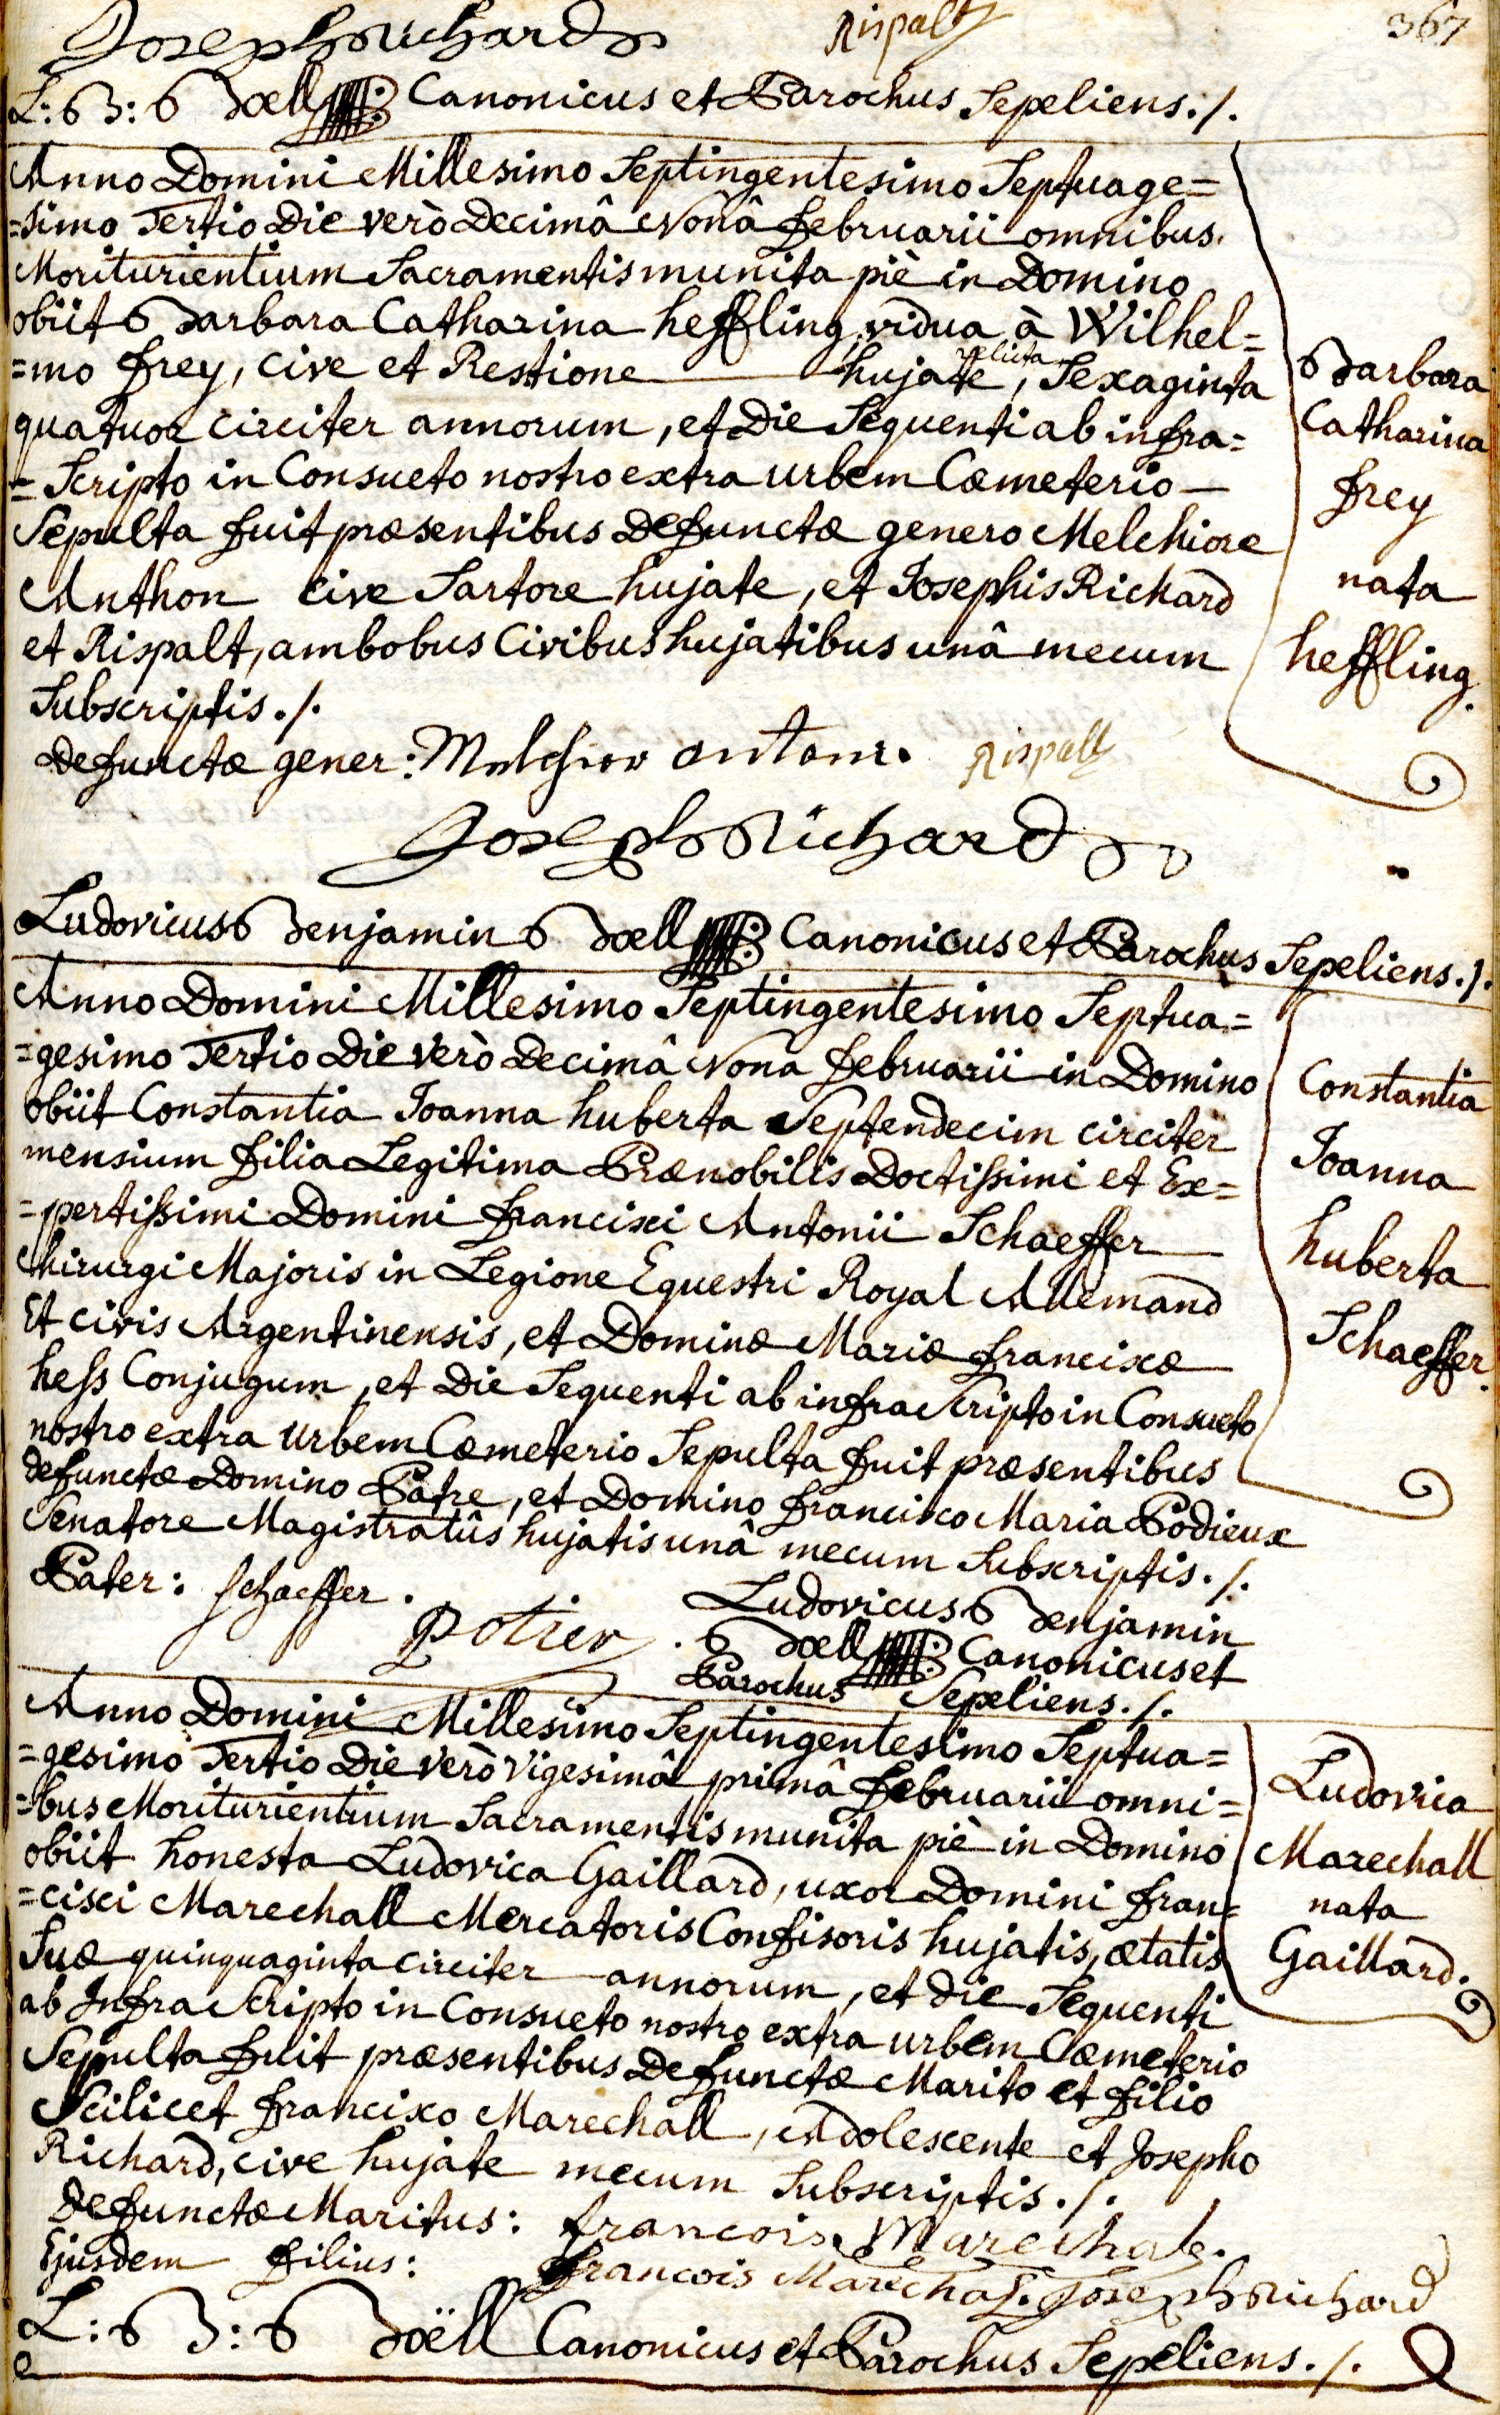 Joseph Richard Rispalt 367
L: B: Boell Canonicus et Parochus Sepeliens./.
Anno Domini Millesimo Septingentesimo Septuage=
=simo Tertio Die verò Decimâ Nonâ Februarii omnibus
Moriturientium Sacramentis munita piè in Domino
obiit Barbara Catharina heffling, vidua à Wilhel=
=mo frey, cive et Restione hujate, relicta Sexaginta
quatuor circiter annorum, et Die Sequenti ab infra=
=Scripto in Consueto nostro extra urbem Cœmeterio
Sepulta fuit præsentibus Defunctæ genero Melchiore
Anthon cive Sartore hujate, et Josephis Richard
et Rispalt, ambobus Civibus hujatibus unâ mecum
Subscriptis./.
Barbara
Catharina
frey
nata
heffling.
Defunctæ gener: Melchior antoni. Rispalt
Joseph Richard
Ludovicus Benjamin Boell Canonicus et Parochus Sepeliens./.
Anno Domini Millesimo Septingentesimo Septua=
=gesimo Tertio Die verò Decimâ Nona februarii in Domino
obiit Constantia Joanna huberta Septendecim circiter
mensium filia Legitima Prænobilis Doctissimi et Ex=
=pertissimi Domini francisci Antonii Schaeffer
Chirurgi Majoris in Legione Equestri Royal Allemand
Et civis Argentinensis, et Dominæ Mariæ franciscæ
hess Conjugum, et Die Sequenti ab infra Scripto in Consueto
nostro extra urbem Cœmeterio Sepulta fuit præsentibus
defunctæ Domino Patre, et Domino francisco Maria Podieux
Senatore Magistratûs hujatis unâ mecum Subscriptis./.
Constantia
Joanna
huberta
Schaeffer.
Pater: schaeffer.
Potier.
Ludovicus Benjamin
Boell Canonicus et
Parochus Sepeliens./.
Anno Domini Millesimo Septingentesimo Septua=
=gesimo Tertio Die verò Vigesimâ primâ februarii omni=
=bus Moriturientium Sacramentis munita piè in Domino
obiit honesta Ludovica Gaillard, uxor Domini fran=
=cisci Marechall Mercatoris Confisoris hujatis, ætatis
Suæ quinquaginta circiter annorum, et die Sequenti
ab Infra Scripto in Consueto nostro extra urbem Cœmeterio
Sepulta fuit præsentibus Defunctæ Marito et filio
Scilicet francisco Marechall, Adolescente et Josepho
Richard, cive hujate mecum Subscriptis./.
Ludovica
Marechall
nata
Gaillard.
Defunctæ Maritus: francois Marechale.
Ejusdem filius: francois Marechal. Joseph Richard
L: B: Boëll Canonicus et Parochus Sepeliens./.